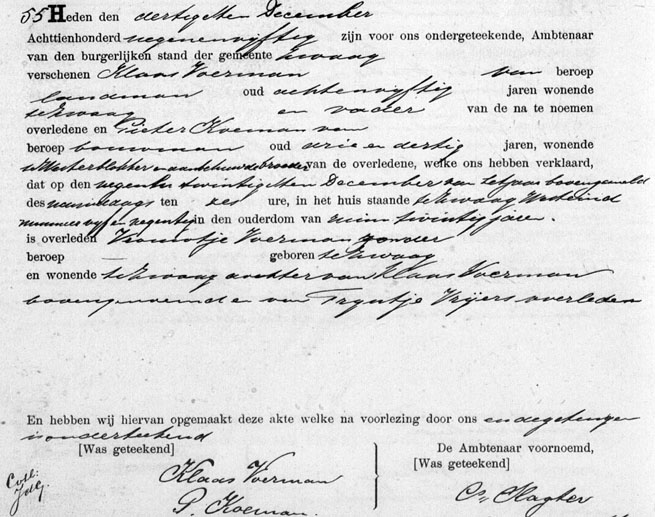 55 Heden den dertigsten December
Achttienhonderd negenenvyftig zijn voor ons ondergeteekende, Ambtenaar
van den burgerlijken stand der gemeente Zwaag
verschenen Klaas Voerman van beroep
landman oud achtenvyftig jaren wonende
te Zwaag en vader van de na te noemen
overledene en Pieter Koeman van
beroep bouwman oud drie en dertig jaren, wonende
te Westerblokker en aanbehuwdebroeder van de overledene, welke ons hebben verklaard,
dat op den negentwintigsten December van het jaar bovengemeld
des namiddags ten zes ure, in het huis staande te Zwaag Westeind
nummer vyf en negentig in den ouderdom van ruim twintig jaren.
is overleden Voerman zonder
beroep — geboren te Zwaag
en wonende te Zwaag dochter van Klaas Voerman
bovengenoemd en van Trijntje Vrijers overleden
En hebben wij hiervan opgemaakt deze akte welke na voorlezing door ons en de getuigen
is onderteekend
[Was geteekend]
Klaas Voerman
P. Koeman.
De Ambtenaar voornoemd,
[Was geteekend]
Cs. Slagter